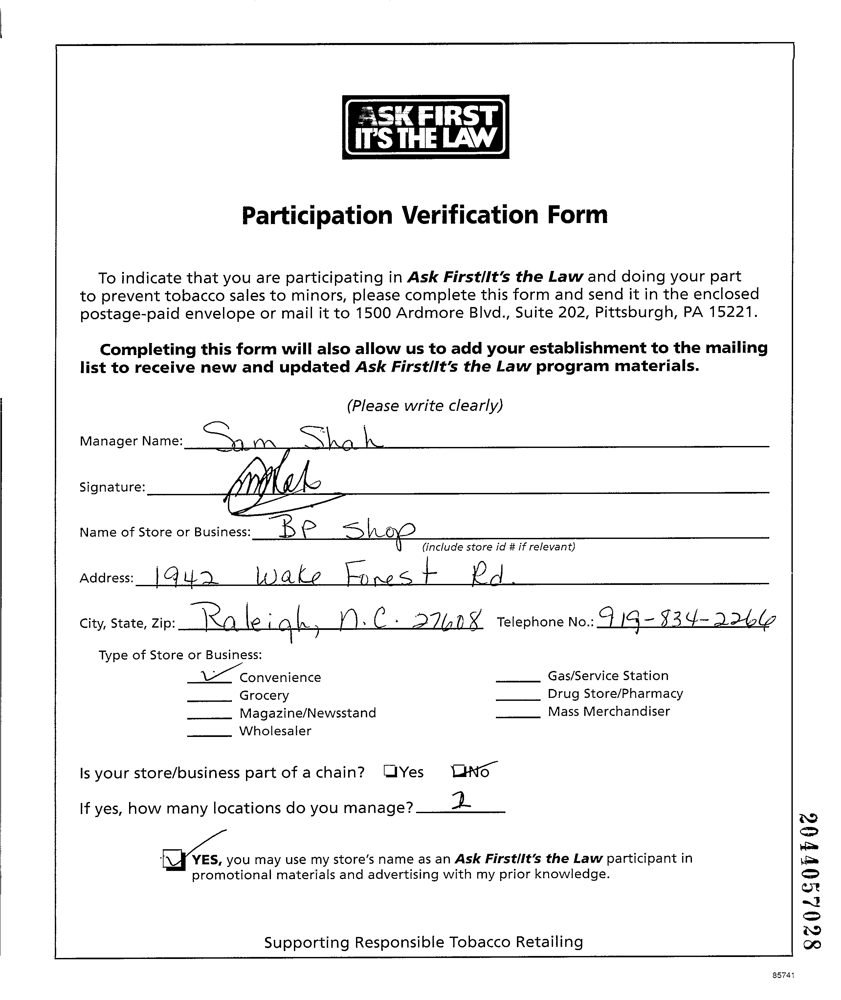 ASK FIRST
IT'S THE LAW
Participation Verification Form
To indicate that you are participating in Ask First/It's the Law and doing your part
to prevent tobacco sales to minors, please complete this form and send it in the enclosed
postage-paid envelope or mail it to 1500 Ardmore Blvd., Suite 202, Pittsburgh, PA 15221.
Completing this form will also allow us to add your establishment to the mailing
list to receive new and updated Ask First/It's the Law program materials.
(Please write clearly)
Manager Name: Sam Shah
Signature:
Name of Store or Business: BP Shop
(include store id # if relevant)
Address: 1942 Wake Forest Rd.
City, State, Zip: Raleigh, N.C. 27608 Telephone No.: 919-834-2266
Type of Store or Business:
Convenience Gas/Service Station
Grocery Drug Store/Pharmacy
Magazine/Newsstand Mass Merchandiser
Wholesaler
Is your store/business part of a chain? Yes No
If yes, how many locations do you manage?
YES, you may use my store's name as an Ask First/It's the Law participant in
promotional materials and advertising with my prior knowledge.
Supporting Responsible Tobacco Retailing
2044057028
85741